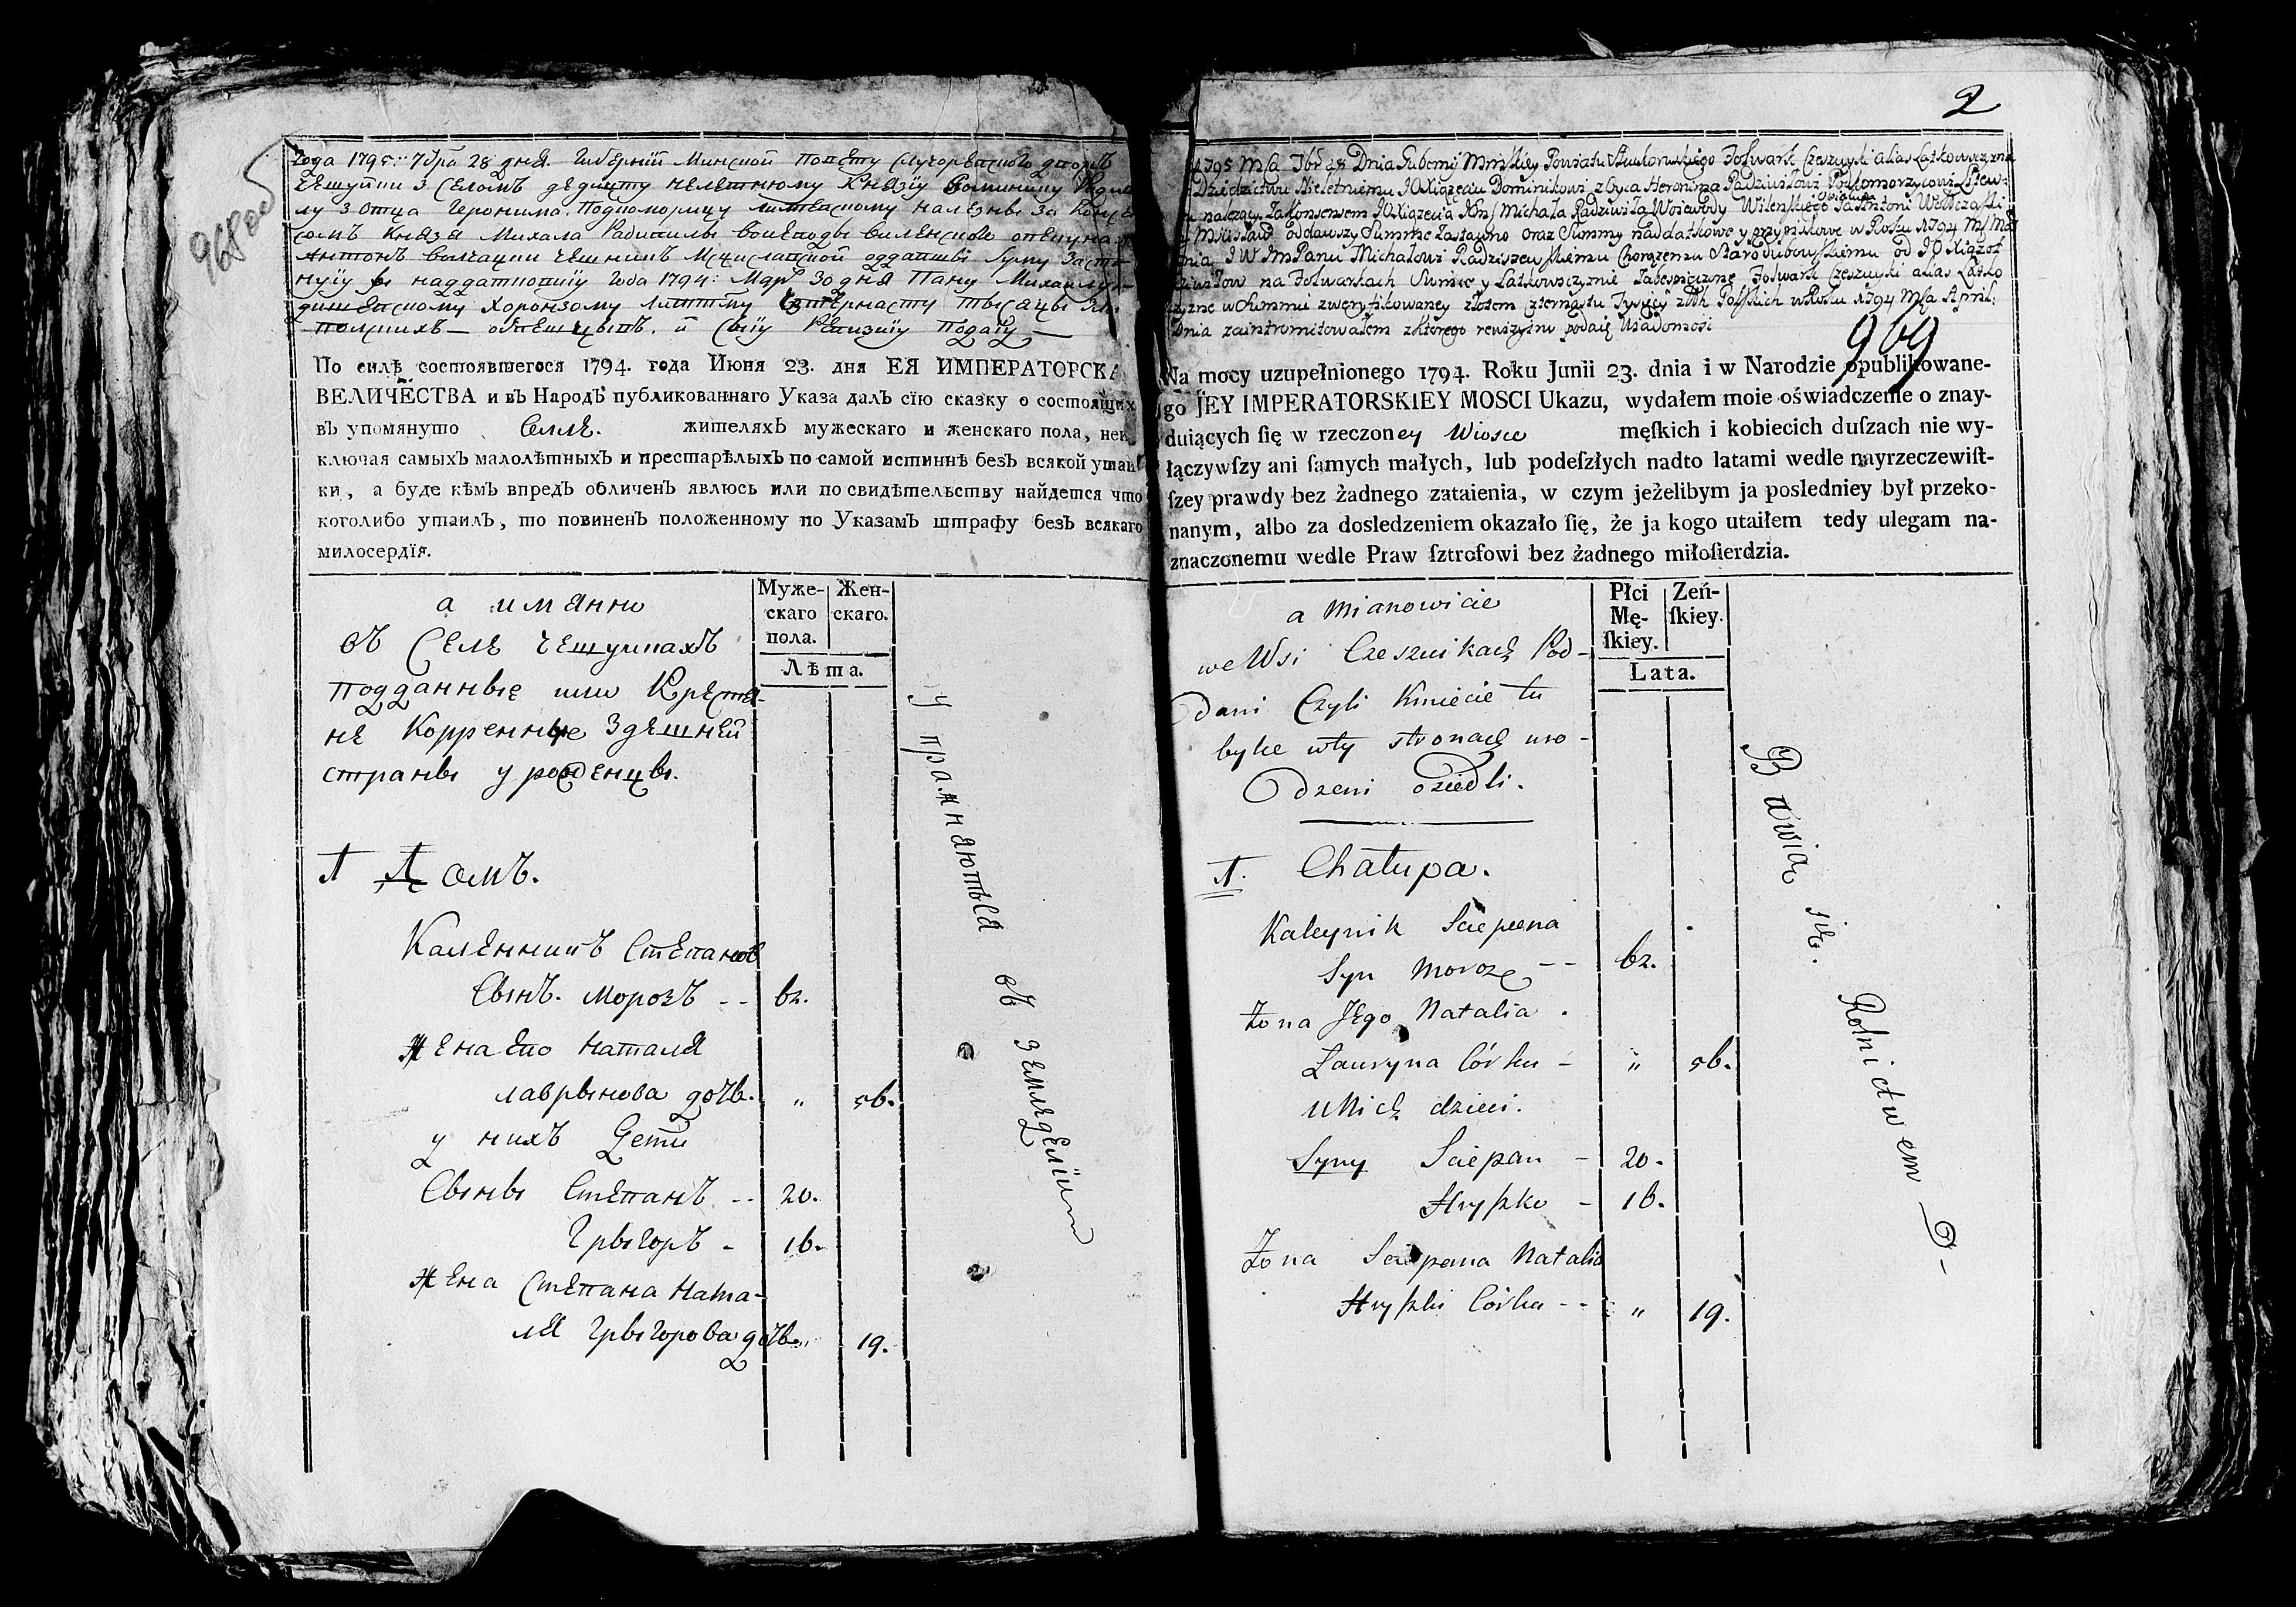 968 об
Года 1795: 7бра 28 дня. Губернiи Минской повету Случорецкого двора
Чешуйки з Селомъ дедицту нелетнему Князiю Доминику Ради
лу з отца Геронима. Подкоморицу литевскому належны за Консен
сомъ Князя Михала Радивилы воеводы виленского опекуна
Антонъ волчацки чешникъ Мсциславской оддавшы суму заста
ную наддатковую года 1794: Мар 30 дня Пану Михаилу
дишевскому Хоронзому тысацы
подаю
По силѣ состоявшегося 1794. года Июня 23. дня ЕЯ ИМПЕРАТОРСКА
ВЕЛИЧЕСТВА и въ Народѣ публикованнаго Указа далъ сїю сказку о состоящих
въ упомянуто Селле. жителяхъ мужескаго и женскаго пола, неи
ключая самыхъ малолѣтныхъ и престарѣлыхъ по самой истиннѣ безъ всякой утаи
ки, а буде кѣмъ впредъ обличенъ явлюсь или по свидѣтельству найдется что
коголибо утаилъ, то повиненъ положенному по Указамъ штрафу безъ всякаго
милосердїя.
Муже-
скаго
пола.
Жен-
скаго.
Лѣта.
а имянно
въ Селе чешуйкахъ
подданные или Крестя-
не Корренные здешней
страны урожденцы.
1 Домъ.
Каленникъ Степановъ
Сынъ. Морозъ -- 62.
Жена его Наталя
лаврынова дочь. „ 56.
у нихъ Дети
Сыны Степанъ -- 20.
Грыгоръ - 16.
Жена Степана Ната-
ля Грыгорова дочь „ 19.
Упражняются въ земляделiи
2
1795 Mca 7br 28 Dnia Gubernij Minskiey Powiatu Folwark Czeszuyki alias Łatkowszczyzna
Dziedzictwu Nieletniemu JO Xiążęciu Dominikowi z Oyca Heronima Radziwiłowi Podkomorzycowi Litew:
należący za konsensem JO Xiążęcia Michała Radziwiła Woiewody Wilenskiego Opiekuna Ja Antoni Wołczacki
oddawszy Summę Zastawno oraz Summy naddatkowe y w Roku 1794
dnia JW Jm Panu Michałowi Radziszewskiemu Chorążemu Starodubowskiemu od JO Xiążąt
na Folwarkach y Łatkowszczyznie zabespieczone Folwark Czeszuyki alias Łatko
w Summie zweryfikowaney złotem czternastu Tysięcy złth Polskich w Roku 1794 Mca April:
Dnia zaintromitowałem z którego rewizyine podaię Wiadomosc
969
Na mocy uzupełnionego 1794. Roku Junii 23. dnia i w Narodzie opublikowane-
go JEY IMPERATORSKIEY MOSCI Ukazu, wydałem moie oświadczenie o znay-
duiących ſię w rzeczoney Wiosce męſkich i kobiecich duſzach nie wy-
łączywſzy ani ſamych małych, lub podeſzłych nadto latami wedle nayrzeczewiſt-
ſzey prawdy bez żadnego zataienia, w czym jeżelibym ja posledniey był przeko-
nanym, albo za dosledzeniem okazało ſię, że ja kogo utaiłem tedy ulegam na-
znaczonemu wedle Praw ſztrofowi bez żadnego miłoſierdzia.
Płci
Mę-
ſkiey.
Zeń-
ſkiey.
Lata.
a Mianowicie
we Wsi Czeszuikach Pod-
dani Czyli Kmiecie tu
tylke w tych stronach uro-
dzeni osiedli.
1. Chałupa.
Kaleynik Sciepana
Syn Moroze -- 62.
Żona Jego Natalia .
Łauryna Córka - „ 56.
u Nich dzieci.
Syny Sciepan - 20.
Hryszko - 16.
Żona Sciepana Natalia
Hryszki Córka -- „ 19.
Bawią się. Rolnictwem